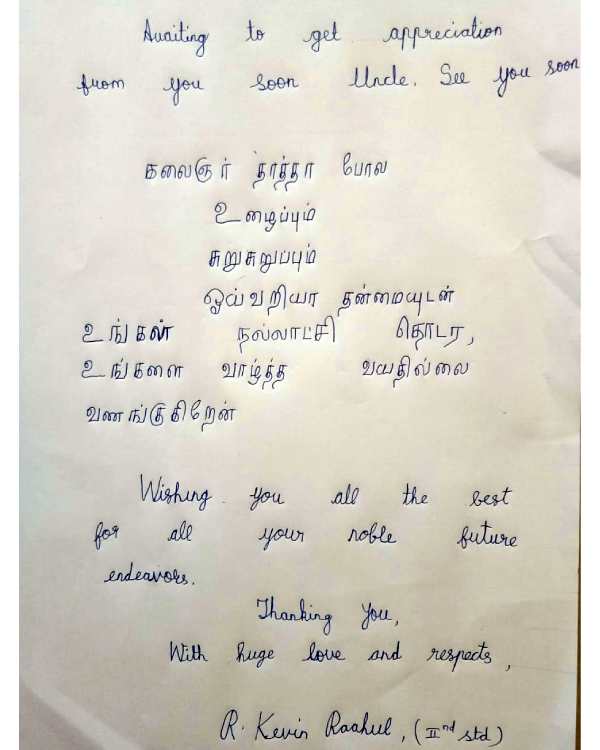 Awaiting to get appreciation
from you soon Uncle. See you soon
கலைஞர் தாத்தா போல
உழைப்பும்
சுறுசுறுப்பும்
ஓய்வறியா தன்மையுடன்
உங்கள் நல்லாட்சி தொடர,
உங்களை வாழ்த்த வயதில்லை
வணங்குகிறேன்
Wishing you all the best
for all your noble future
endeavors.
Thanking You,
With huge love and respects,
R. Kevin Raahul, (IInd std)